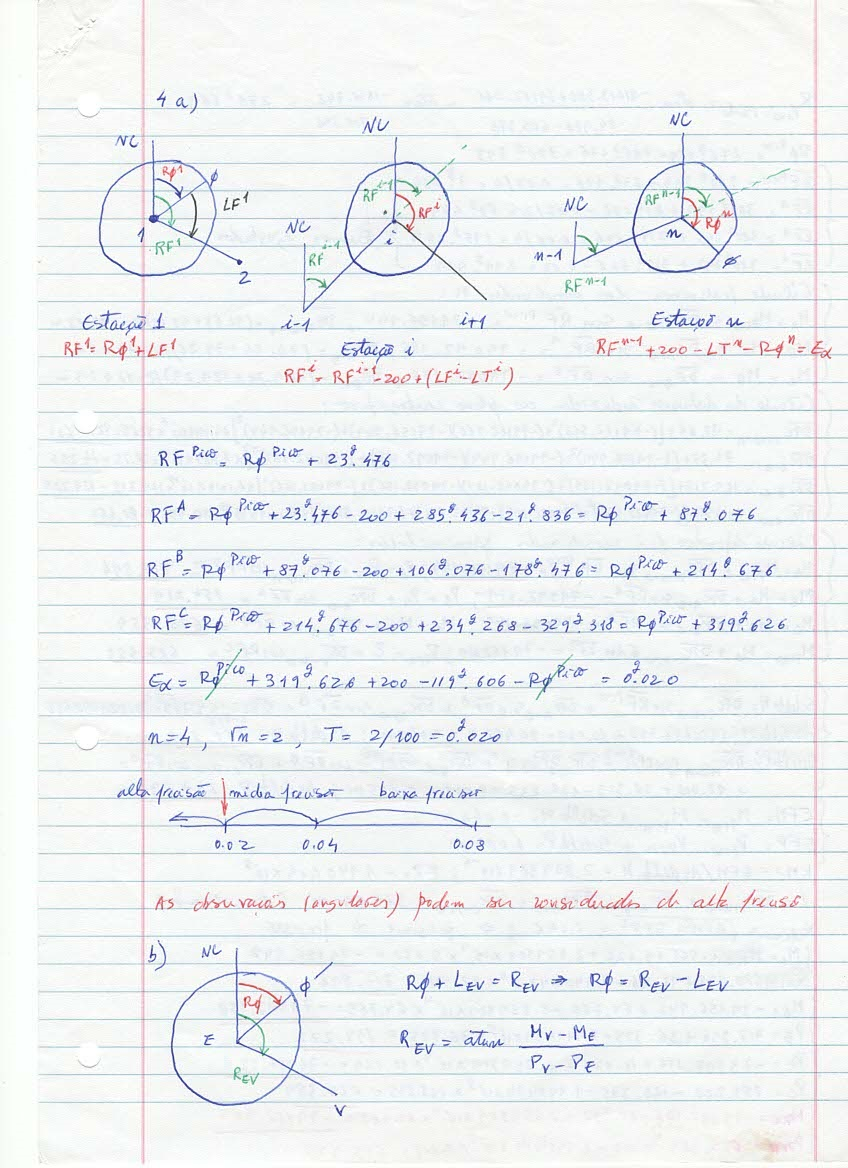 4 a)
NC
Rϕ¹
ϕ
LF¹
1
RF¹
2
Estação 1
RF¹ = Rϕ¹ + LF¹
NC
RFⁱ⁻¹
RFⁱ
i
NC
RFⁱ⁻¹
i-1
i+1
Estação i
RFⁱ = RFⁱ⁻¹ - 200 + (LFⁱ - LTⁱ)
NC
RFⁿ⁻¹
Rϕⁿ
n
ϕ
NC
n-1
RFⁿ⁻¹
Estação n
RFⁿ⁻¹ + 200 - LTⁿ - Rϕⁿ = Eα
RF^Pico = Rϕ^Pico + 23ᵍ.476
RF^A = Rϕ^Pico + 23ᵍ.476 - 200 + 285ᵍ.436 - 21ᵍ.836 = Rϕ^Pico + 87ᵍ.076
RF^B = Rϕ^Pico + 87ᵍ.076 - 200 + 106ᵍ.076 - 178ᵍ.476 = Rϕ^Pico + 214ᵍ.676
RF^C = Rϕ^Pico + 214ᵍ.676 - 200 + 234ᵍ.268 - 329ᵍ.318 = Rϕ^Pico + 319ᵍ.626
Eα = Rϕ^Pico + 319ᵍ.626 + 200 - 119ᵍ.606 - Rϕ^Pico = 0ᵍ.020
n = 4 , √n = 2 , T = 2/100 = 0ᵍ.020
alta precisão média precisão baixa precisão
0.02 0.04 0.08
As observações (angulares) podem ser consideradas de alta precisão
b)
NC
ϕ
Rϕ
E
R_EV
V
Rϕ + L_EV = R_EV ⇒ Rϕ = R_EV - L_EV
R_EV = atan (M_V - M_E) / (P_V - P_E)